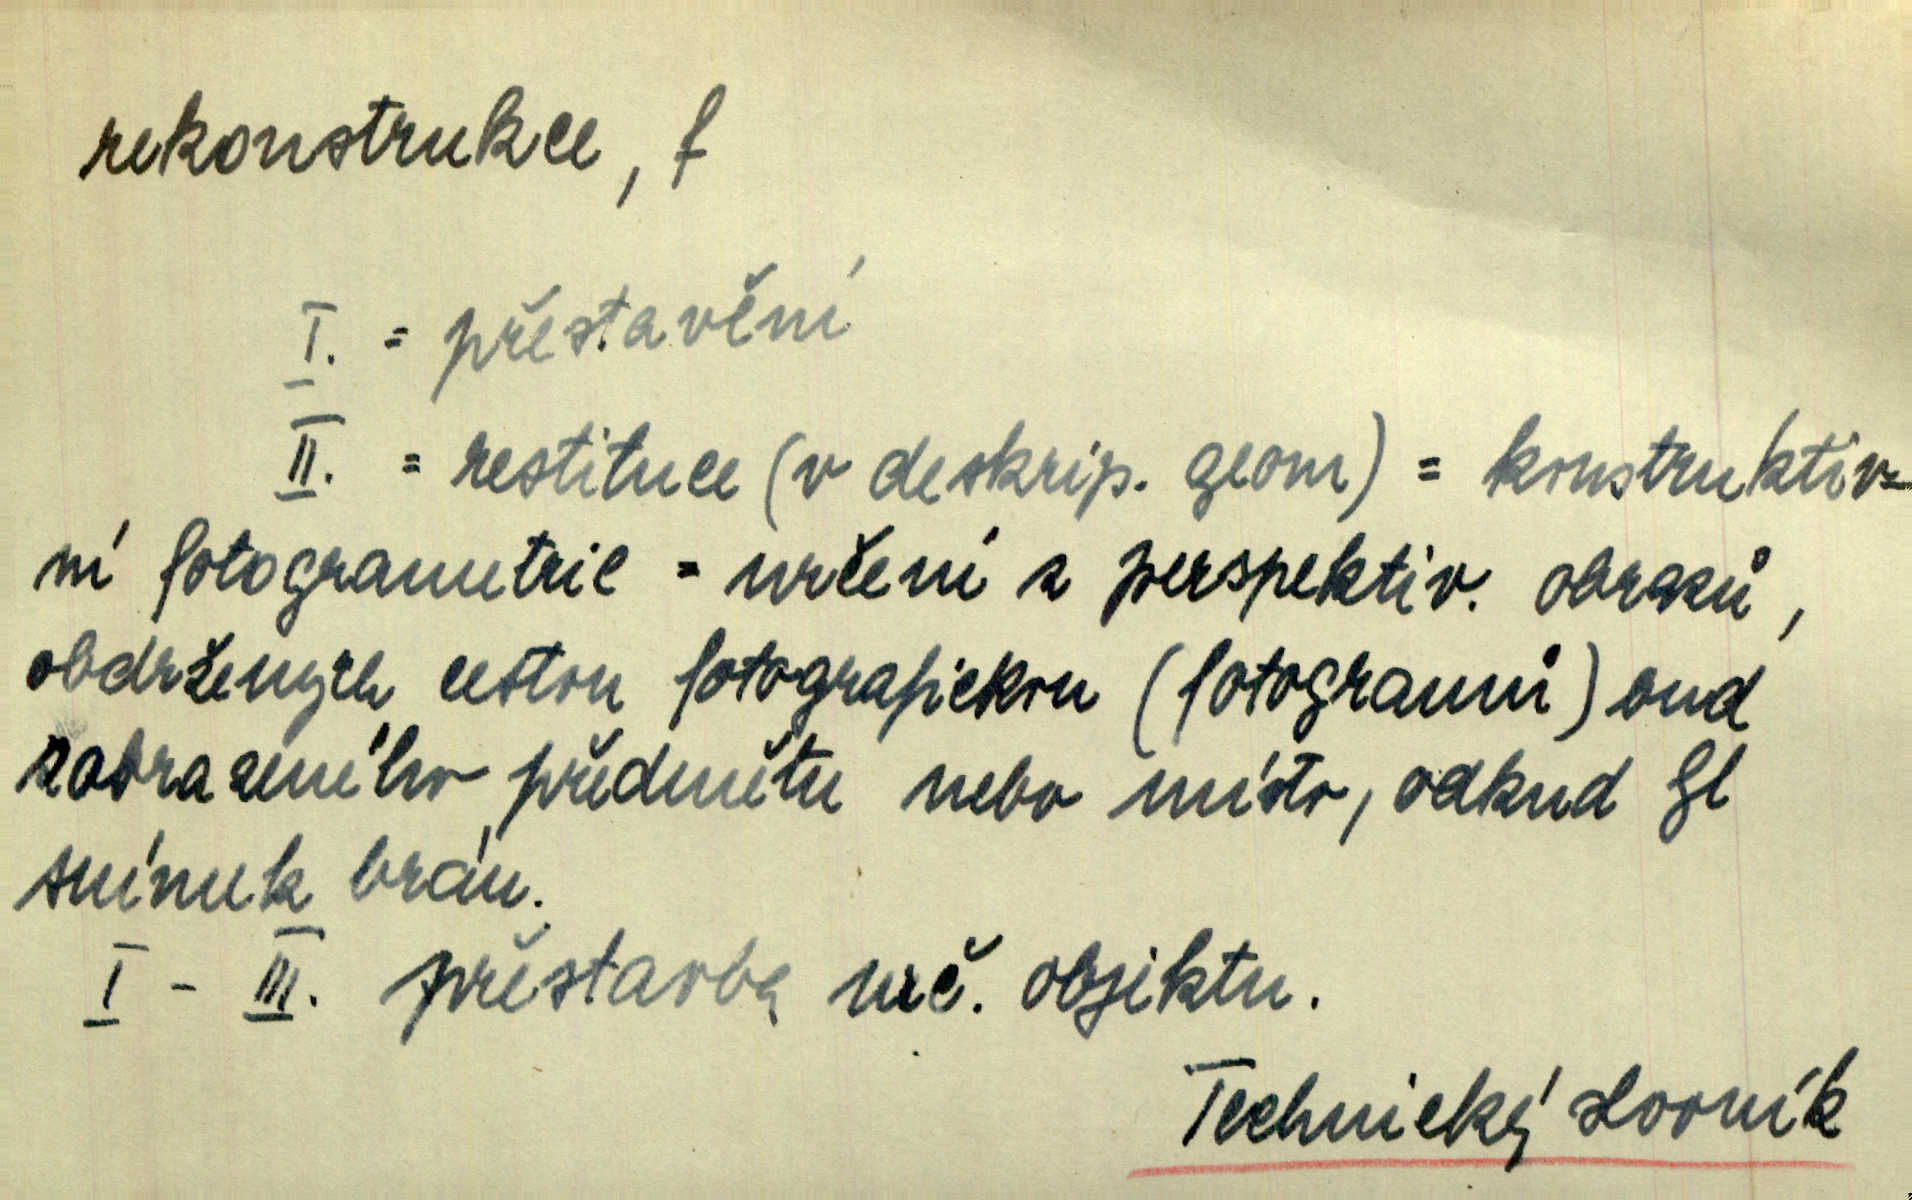 rekonstrukce, f
I. = přestavění
II. = restituce (v deskrip. geom) = konstruktiv-
ní fotogrametrie = určení z perspektiv. obrazů,
obdržených cestou fotografickou (fotogramů) oud
zobrazeného předmětu nebo místo, odkud byl
snímek brán.
I - III. přestavba urč. objektu.
Technický slovník